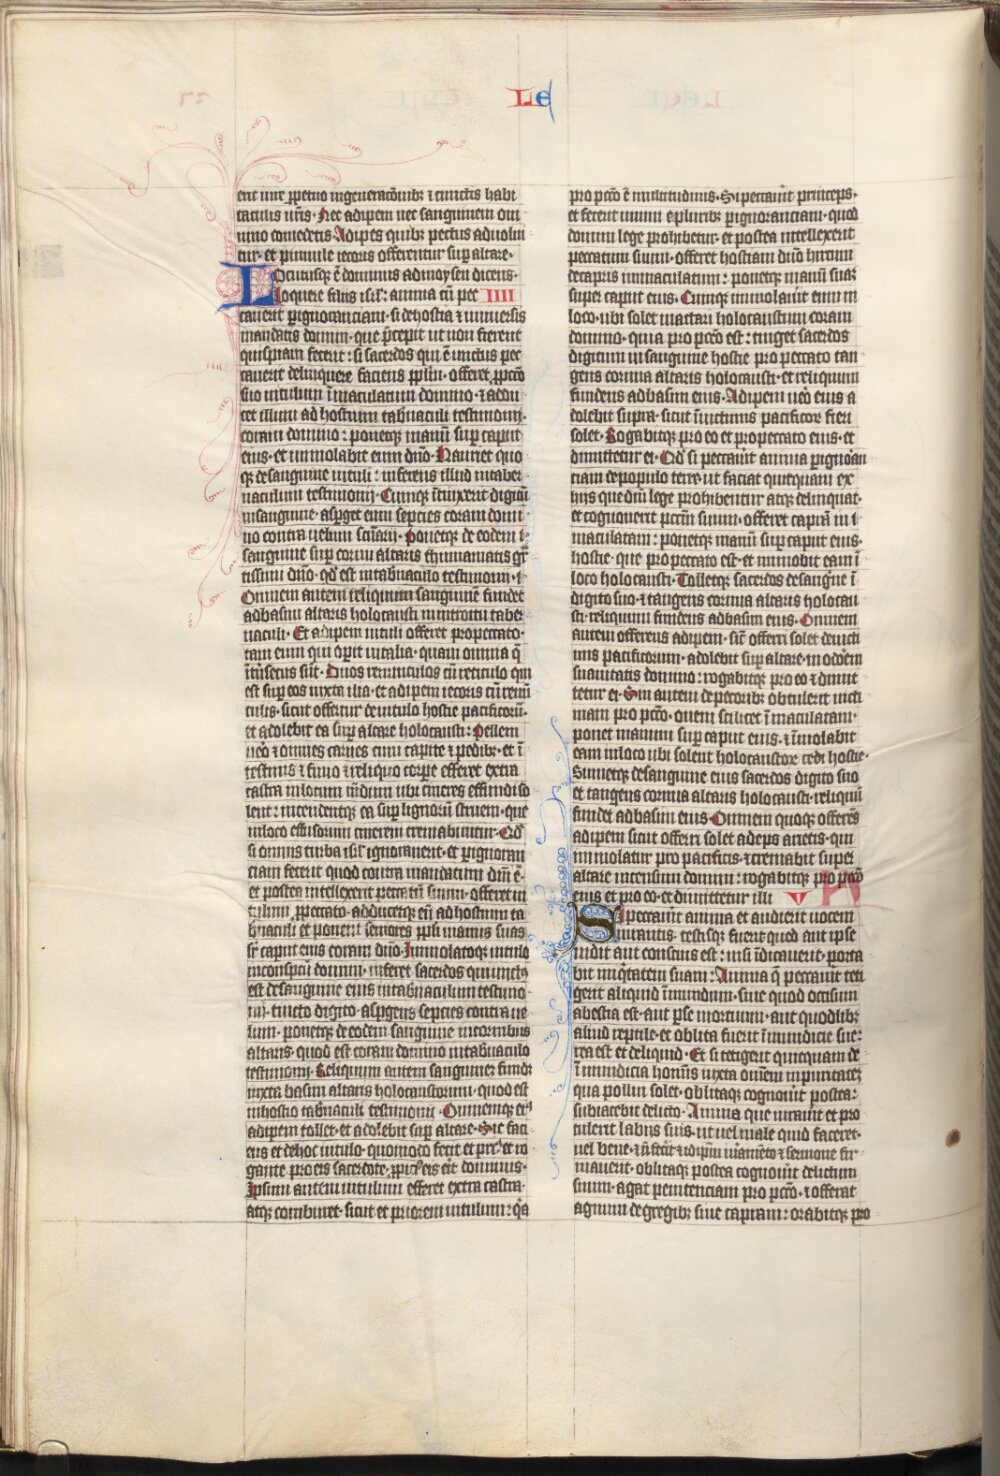 Le
ent ure ꝑpetuo ingeneracōnibꝫ ⁊ cunctis habi
taculis uris· Nec adipem nec sanguinem om
nino comedetis· Adipes quibꝫ pectus aduolui
tur· et pinnule iecoris offerentur suꝑ altare·
Locutusqꝫ ē dominus ad moysen dicens·
Loquere filiis isrl: anima cū pec IIII
cauerit ꝑ ignoranciam· si de hostia ⁊ uniuersis
mandatis domini· que p̄cepit ut non fierent
quispiam fecerit: si sacerdos qui ē unctus pec
cauerit delinquere faciens ppl̄m· offeret ꝓ pctō
suo uitulum ī maculatum domino· ⁊ addu
cet illum ad hostium tab̄naculi testimonij·
coram domino: ponetqꝫ manū suꝑ caput
eius· et immolabit eum dn̄o· Hauriet quo
qꝫ de sanguine uituli: inferens illud in taber
naculum testimonij· Cumqꝫ ītinxerit digitū
in sanguine· asꝑget eum sepcies coram domi
no contra uelum sc̄uarij· Ponetqꝫ de eodem
sanguine suꝑ cornu altaris thimiamatis gͣ
tissimi dn̄o· qd̄ est in tab̄naculo testimonii·
Omnem autem reliquum sanguinē fundet
ad basim altaris holocausti in introitu taber
naculi· Et adipem uituli offeret pro peccato·
tam eum qui oꝑit uitalia· quam omnia q̄
ītr̄secus sūt· Duos renunculos cū reticulo qui
est suꝑ eos iuxta ilia· et adipem iecoris cū renū
culis· sicut offertur de uitulo hostie pacificorū·
et adolebit ea suꝑ altare holocausti: Pellem
ue̊ ⁊ omnes carnes cum capite ⁊ pedibꝫ· et ī
testinis ⁊ fimo ⁊ reliquo corꝑe efferet extra
castra in locum mūdum ubi cineres effundi so
lent: incendetqꝫ ea suꝑ lignorū struem· que
in loco effusorum cinerem cremabuntur· Qd̄
si omnis turba isrl̄ ignorauerit· et ꝑ ignoran
ciam fecerit quod contra mandatum dn̄i ē·
et postea intellexerit peccatū suum· offeret ui
tulum ꝓ peccato· adducetqꝫ eū ad hostium ta
b̄naculi et ponent seniores ppl̄i manus suas
sr̄ caput eius coram dn̄o· Immolatoqꝫ uitulo
in conspectu domini· inferet sacerdos qui unctus
est de sanguine eius in tab̄naculum testimo
nij· tincto digito· asꝑgens sepcies contra ue
lum· ponetqꝫ de eodem sanguine in cornibus
altaris· quod est coram domino in tab̄naculo
testimonij· Reliquum autem sanguinem fundet
iuxta basim altaris holocaustorum· quod est
in hostio tab̄naculi testimonii· Omnemqꝫ eiꝰ
adipem tollet· et adolebit suꝑ altare· Sic faci
ens et de hoc uitulo· quomodo fecit et priꝰ· et ro
gante pro eis sacerdote· ꝓpiciꝰ eis erit dominus·
Ipsum autem uitulum efferet extra castra·
atqꝫ comburet· sicut et priorem uitulum: qͣa
pro pctō ē multitudinis· Si peccauīt princeps·
et fecerit unum e pluribꝫ ꝑ ignoranciam· quod
domini lege prohibetur· et postea intellexerit
peccatum suum· offeret hostiam dn̄o hircum
de capris inmaculatum: ponetqꝫ manū suā
super caput eius· Cumqꝫ immolauīt eum in
loco· ubi solet mactari holocaustum coram
domino· quia pro pctō est: tinget sacerdos
digitum in sanguine hostie pro peccato tan
gens cornua altaris holocausti· et reliquum
fundens ad basim eius· Adipem ue̊o eius a
dolebit supra· sicut ī uictimis pacificoꝝ fieri
solet· Rogabitqꝫ pro eo et pro peccato eius· et
dimittetur ei· Qd̄ si peccauīt anima ꝑ ignorān
ciam de populo terre· ut faciat quicquam ex
hiis que dn̄i lege prohibentur atqꝫ delinquat·
et cognouerit pctm̄ suum· offeret caprā in ī
maculatam: ponetqꝫ manū suꝑ caput eius·
hostie· que pro peccato est· et immobit eam ī
loco holocausti· Tolletqꝫ sacerdos de sangīne ī
digito suo· ⁊ tangens cornua altaris holocau
sti· reliquum fundens ad basim eius· Omnem
autem offerens adipem· sic̄ offerri solet de uicti
mis pacificorum· adolebit suꝑ altare· in odo̊em
suauitatis domino: rogabitqꝫ pro eo ⁊ dimit
tetur ei· Sin autem de pecoribꝫ obtulerit uicti
mam pro pctō· ouem scilicet ī maculatam·
ponet manum suꝑ caput eius· ⁊ īmolabit
eam in loco ubi solent holocaustoꝝ cedi hostie·
Sumetqꝫ de sanguine eius sacerdos digito suo
et tangens cornua altaris holocausti· reliquū
fundet ad basim eius· Omnem quoqꝫ offerēs
adipem sicut offerri solet adeps arietis· qui
immolatur pro pacificis· ⁊ cremabit super
altare incensum domini: rogabitqꝫ pro pctō
eius et pro eo· et dimittetur illi V
Si peccauīt anima et audierit uocem
iurantis· testisqꝫ fuerit quod aut ipse
uidit aut conscius est: nisi īdicauerit· porta
bit iniqͥtatem suam: Anima q̄ peccauīt teti
gerit aliquid īmundum· siue quod occisum
a bestia est· aut ꝑ se mortuum· aut quodlibꝫ
aliud reptile· et oblita fuerit īmundicie sue:
rea est et deliquid· Et si tetigerit quicquam de
īmundicia hoīnis iuxta omēm inpuritatē·
qua pollui solet· oblitaqꝫ cognouīt postea:
subiacebit delicto· Anima que iurauīt et pro
tulerit labiis suis· ut uel male quid faceret·
uel bene· ⁊ id ipm̄ iuramēto ⁊ sermone fir
mauerit· oblitaqꝫ postea cognouīt delictum
suum· agat penitenciam pro pctō· ⁊ offerat
agnum de gregibꝫ siue capram: orabitqꝫ pro